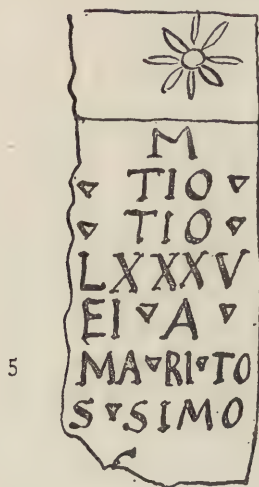 M
▿ TIO ▿
▿ TIO ▿
LXXXV
EI ▿ A ▿
MA▿RI▿TO
5
S▿SIMO